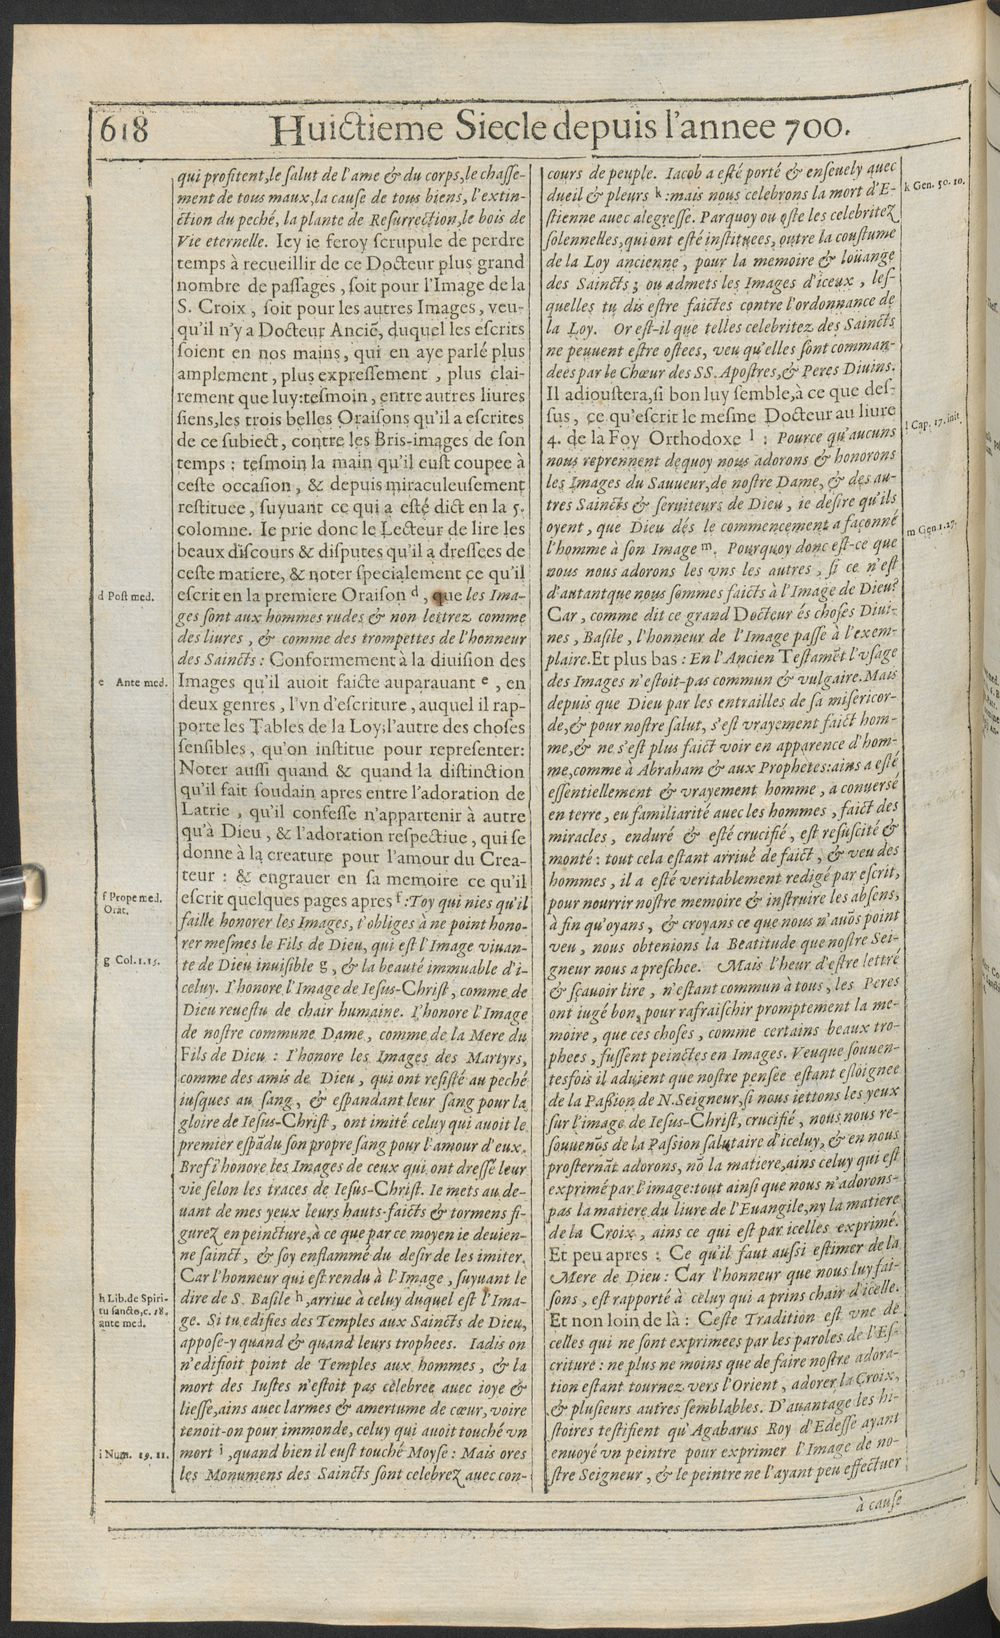 618 Huictieme Siecle depuis l'annee 700.
qui profitent, le salut de l'ame & du corps, le chasse-
ment de tous maux, la cause de tous biens, l'extin-
ction du peché, la plante de Resurrection, le bois de
Vie eternelle. Icy ie feroy scrupule de perdre
temps à recueillir de ce Docteur plus grand
nombre de passages, soit pour l'Image de la
S. Croix, soit pour les autres Images, veu-
qu'il n'y a Docteur Anciẽ, duquel les escrits
soient en nos mains, qui en aye parlé plus
amplement, plus expressement, plus clai-
rement que luy: tesmoin, entre autres liures
siens, les trois belles Oraisons qu'il a escrites
de ce subiect, contre les Bris-images de son
temps: tesmoin la main qu'il eust coupee à
ceste occasion, & depuis miraculeusement
restituee, suyuant ce qui a esté dict en la 5.
colomne. Ie prie donc le Lecteur de lire les
beaux discours & disputes qu'il a dressees de
ceste matiere, & noter specialement ce qu'il
d Post med.
escrit en la premiere Oraison d, que les Ima-
ges sont aux hommes rudes & non lettrez comme
des liures, & comme des trompettes de l'honneur
des Saincts: Conformement à la diuision des
e Ante med.
Images qu'il auoit faicte auparauant e, en
deux genres, l'vn d'escriture, auquel il rap-
porte les Tables de la Loy; l'autre des choses
sensibles, qu'on institue pour representer:
Noter aussi quand & quand la distinction
qu'il fait soudain apres entre l'adoration de
Latrie, qu'il confesse n'appartenir à autre
qu'à Dieu, & l'adoration respectiue, qui se
donne à la creature pour l'amour du Crea-
teur: & engrauer en sa memoire ce qu'il
f Prope med.
Orat.
escrit quelques pages apres f: Toy qui nies qu'il
faille honorer les Images, t'obliges à ne point hono-
rer mesmes le Fils de Dieu, qui est l'Image viuan-
g Col. 1.15.
te de Dieu inuisible g, & la beauté immuable d'i-
celuy. I'honore l'Image de Iesus-Christ, comme de
Dieu reuestu de chair humaine. I'honore l'Image
de nostre commune Dame, comme de la Mere du
Fils de Dieu: I'honore les Images des Martyrs,
comme des amis de Dieu, qui ont resisté au peché
iusques au sang, & espandant leur sang pour la
gloire de Iesus-Christ, ont imité celuy qui auoit le
premier espãdu son propre sang pour l'amour d'eux.
Bref i'honore les Images de ceux qui ont dressé leur
vie selon les traces de Iesus-Christ. Ie mets au de-
uant de mes yeux leurs hauts-faicts & tormens fi-
gurez en peincture, à ce que par ce moyen ie deuien-
ne sainct, & soy enflammé du desir de les imiter.
Car l'honneur qui est rendu à l'Image, suyuant le
h Lib. de Spiri-
tu sancto, c. 18.
ante med.
dire de S. Basile h, arriue à celuy duquel est l'Ima-
ge. Si tu edifies des Temples aux Saincts de Dieu,
appose-y quand & quand leurs trophees. Iadis on
n'edifioit point de Temples aux hommes, & la
mort des Iustes n'estoit pas celebree auec ioye &
liesse, ains auec larmes & amertume de cœur, voire
tenoit-on pour immonde, celuy qui auoit touché vn
i Num. 19.11.
mort i, quand bien il eust touché Moyse: Mais ores
les Monumens des Saincts sont celebrez auec con-
cours de peuple. Iacob a esté porté & enseuely auec
k Gen. 50. 10.
dueil & pleurs k: mais nous celebrons la mort d'E-
stienne auec alegresse. Parquoy ou oste les celebritez
solennelles, qui ont esté instituees, outre la coustume
de la Loy ancienne, pour la memoire & loüange
des Saincts; ou admets les Images d'iceux, les-
quelles tu dis estre faictes contre l'ordonnance de
la Loy. Or est-il que telles celebritez des Saincts
ne peuuent estre ostees, veu qu'elles sont comman-
dees par le Chœur des SS. Apostres, & Peres Diuins.
Il adioustera, si bon luy semble, à ce que des-
sus, ce qu'escrit le mesme Docteur au liure
l Cap. 17. init.
4. de la Foy Orthodoxe l: Pource qu'aucuns
nous reprennent dequoy nous adorons & honorons
les Images du Sauueur, de nostre Dame, & des au-
tres Saincts & seruiteurs de Dieu, ie desire qu'ils
oyent, que Dieu dés le commencement a façonné
m Gen. 1.27.
l'homme à son Image m. Pourquoy donc est-ce que
nous nous adorons les vns les autres, si ce n'est
d'autant que nous sommes faicts à l'Image de Dieu?
Car, comme dit ce grand Docteur és choses Diui-
nes, Basile, l'honneur de l'Image passe à l'exem-
plaire. Et plus bas: En l'Ancien Testamẽt l'vsage
des Images n'estoit-pas commun & vulgaire. Mais
depuis que Dieu par les entrailles de sa misericor-
de, & pour nostre salut, s'est vrayement faict hom-
me, & ne s'est plus faict voir en apparence d'hom-
me, comme à Abraham & aux Prophetes: ains a esté
essentiellement & vrayement homme, a conuersé
en terre, eu familiarité auec les hommes, faict des
miracles, enduré & esté crucifié, est resuscité &
monté: tout cela estant arriué de faict, & veu des
hommes, il a esté veritablement redigé par escrit,
pour nourrir nostre memoire & instruire les absens,
à fin qu'oyans, & croyans ce que nous n'auõs point
veu, nous obtenions la Beatitude que nostre Sei-
gneur nous a preschee. Mais l'heur d'estre lettré
& sçauoir lire, n'estant commun à tous, les Peres
ont iugé bon, pour rafraischir promptement la me-
moire, que ces choses, comme certains beaux tro-
phees, fussent peinctes en Images. Veuque souuen-
tesfois il aduient que nostre pensee estant esloignee
de la Passion de N. Seigneur, si nous iettons les yeux
sur l'image de Iesus-Christ, crucifié, nous nous re-
souuenõs de la Passion salutaire d'iceluy, & en nous
prosternãt adorons, nõ la matiere, ains celuy qui est
exprimé par l'image: tout ainsi que nous n'adorons-
pas la matiere du liure de l'Euangile, ny la matiere
de la Croix, ains ce qui est par icelles exprimé.
Et peu apres: Ce qu'il faut aussi estimer de la
Mere de Dieu: Car l'honneur que nous luy fai-
sons, est rapporté à celuy qui a prins chair d'icelle.
Et non loin de là: Ceste Tradition est vne de
celles qui ne sont exprimees par les paroles de l'Es-
criture: ne plus ne moins que de faire nostre adora-
tion estant tournez vers l'Orient, adorer la Croix,
& plusieurs autres semblables. D'auantage les hi-
stoires testifient qu'Agabarus Roy d'Edesse ayant
enuoyé vn peintre pour exprimer l'Image de no-
stre Seigneur, & le peintre ne l'ayant peu effectuer
à cause